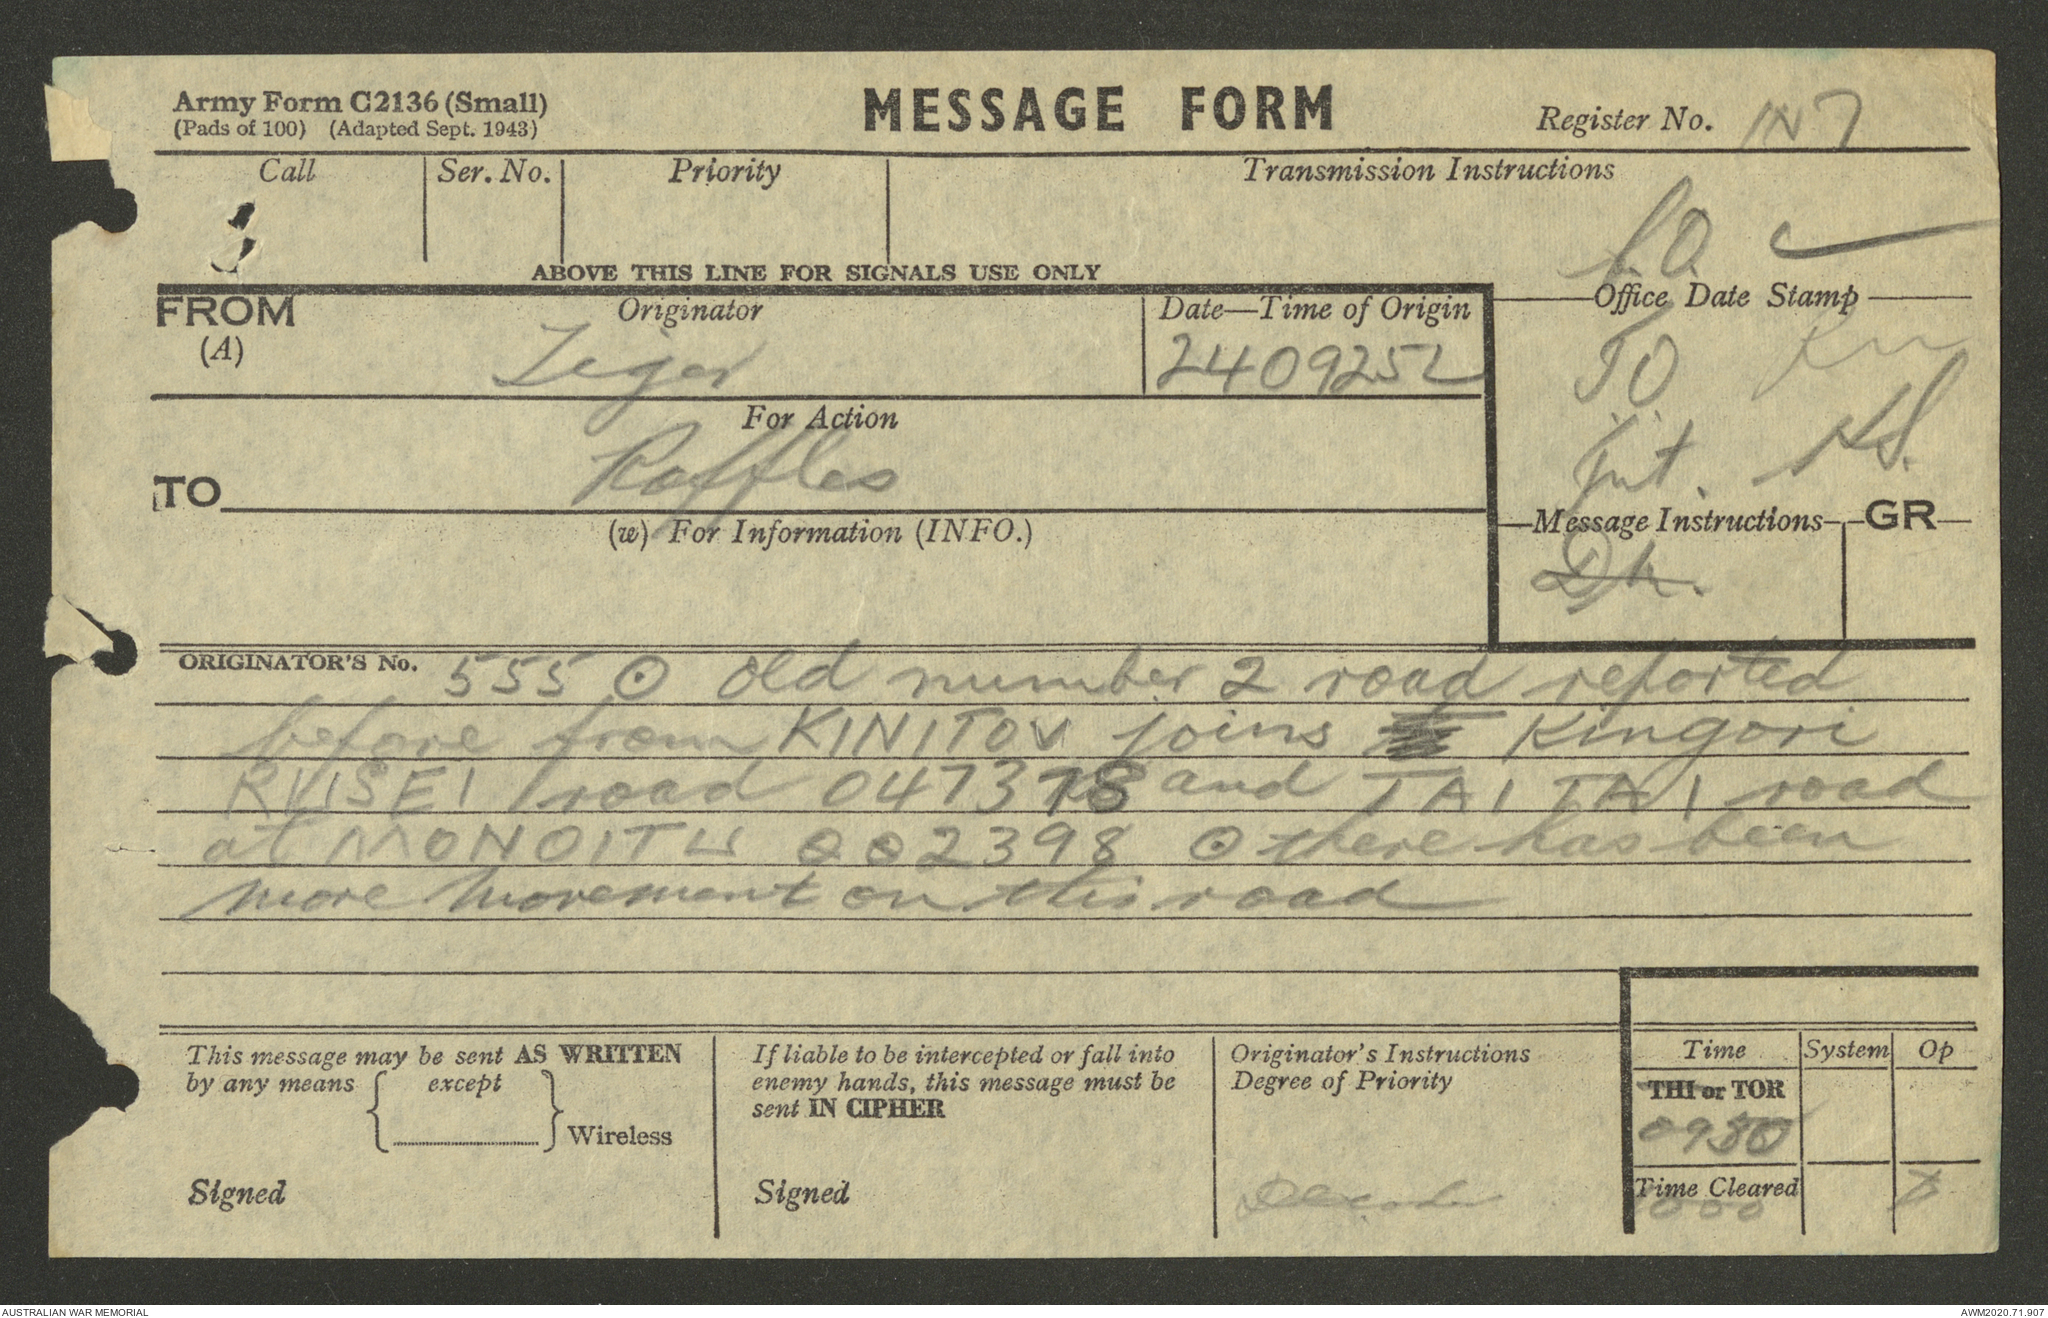 Army Form C2136 (Small)
(Pads of 100) (Adapted Sept. 1943)
MESSAGE FORM
Register No. IN 7
Call
Ser. No.
Priority
Transmission Instructions
ABOVE THIS LINE FOR SIGNALS USE ONLY
FROM
(A)
Originator
Date—Time of Origin
240925L
Office Date Stamp
IO
Int.
For Action
TO
Raffles
(w) For Information (INFO.)
Message Instructions
GR
ORIGINATOR'S No. 555 ⊙ old number 2 road reported
before from KINITOV joins Kingori
RUISEI road 047378 and TAI TAI road
at MONOITU 002398 ⊙ there has been
more movement on this road
This message may be sent AS WRITTEN
by any means { except } Wireless
Signed
If liable to be intercepted or fall into
enemy hands, this message must be
sent IN CIPHER
Signed
Originator's Instructions
Degree of Priority
Time
System
Op
THI or TOR
Time Cleared
1000
AUSTRALIAN WAR MEMORIAL
AWM2020.71.907